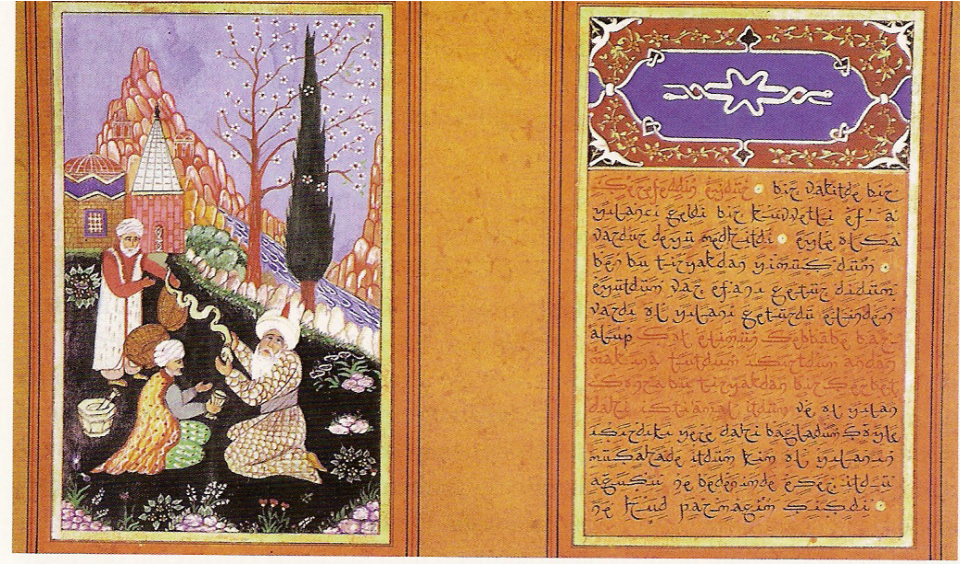 Şerefeddin eydür bir vakitde bir
yılancı geldi bir kuvvetli ef-a
vardur deyü medhitdi eyle olsa
ben bu tiryakdan yimüşdüm
eyütdüm var efaı getür didüm
vardı ol yılanı getürdü elinden
alup sol elimün sebbabe bar-
makına tutdum ısırtdum andan
sonra bu tiryakdan bir şerbet
dahi istiamal itdüm ve ol yılan
ısırdıki yere dahi bagladum şöyle
müşahade itdüm kim ol yılanın
agusu ne bedenimde eser itdü
ne hud parmagım şişdi